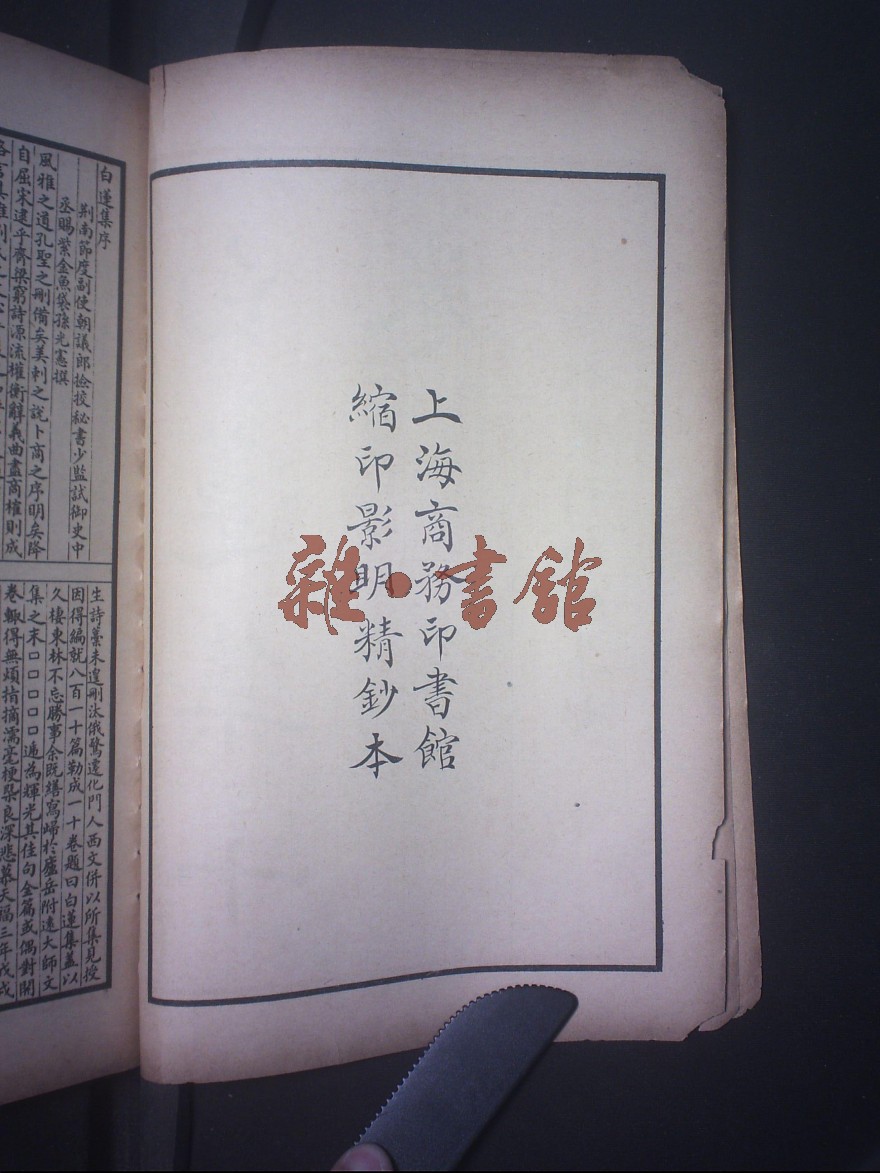 上海商務印書館
縮印影明精鈔本
雜·書館
白蓮集序
荆南節度副使朝議郎檢挍秘書少監試御史中
丞賜紫金魚袋孫光憲撰
風雅之道孔聖之刪備矣美刺之說卜商之序明矣降
自屈宋逮乎齊梁窮詩源流權衡辭義曲盡商榷則成
生詩藁未遑刪汰俄驚遷化門人西文併以所集見授
因得編就八百一十篇勒成一十卷題曰白蓮集蓋以
久棲東林不忘勝事余既繕寫歸於廬岳附遠大師文
集之末□□□□□遁為輝光其佳句金篇或偶對開
卷輙得無煩指摘濡毫梗槩良深悲慕天福三年戊戌